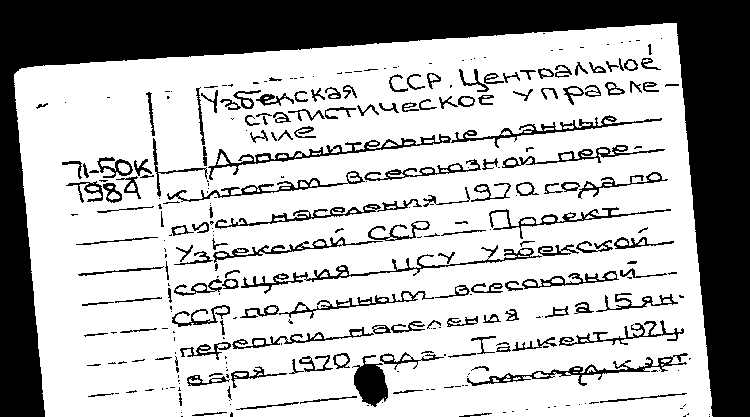 Узбекская ССР. Центральное
статистическое управле-
ние
71-50к
1984
Дополнительные данные
к итогам всесоюзной пере-
писи населения 1970 года по
Узбекской ССР - Проект
сообщения ЦСУ Узбекской
ССР по данным всесоюзной
переписи населения на 15 ян-
варя 1970 года. Ташкент, 1971,
См. след. карт.